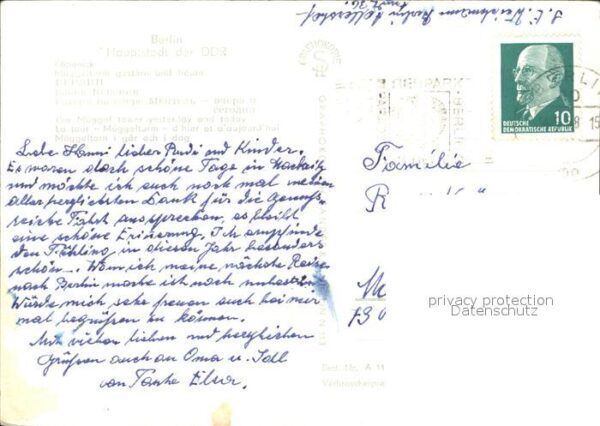 S. E. Weidemann Berlin Adlershof
Berlin
Hauptstadt der DDR
Köpenick
Müggelturm gestern und heute
The Müggel tower yesterday and today
La tour - Müggelturm - d'hier et d'aujourd'hui
Müggelturn i går och i dag
TIERPARK BERLIN
10
DEUTSCHE
DEMOKRATISCHE REPUBLIK
15
Liebe Hanni lieber Rudi und Kinder.
Es waren doch schöne Tage in
und möchte ich auch noch mal meinen
allerherzlichsten Dank für die
Fahrt aussprechen, es bleibt
eine schöne Erinnerung. Ich empfinde
den Frühling in diesem Jahr besonders
schön. Wann ich meine nächste Reise
nach Berlin mache ist noch unbestimmt
Würde mich sehr freuen auch bei mir
mal begrüßen zu können.
Mit vielen lieben und herzlichen
Grüßen auch an Oma u.
von Tante Elsa.
Familie
R
privacy protection
Datenschutz
Best.-Nr. A 11